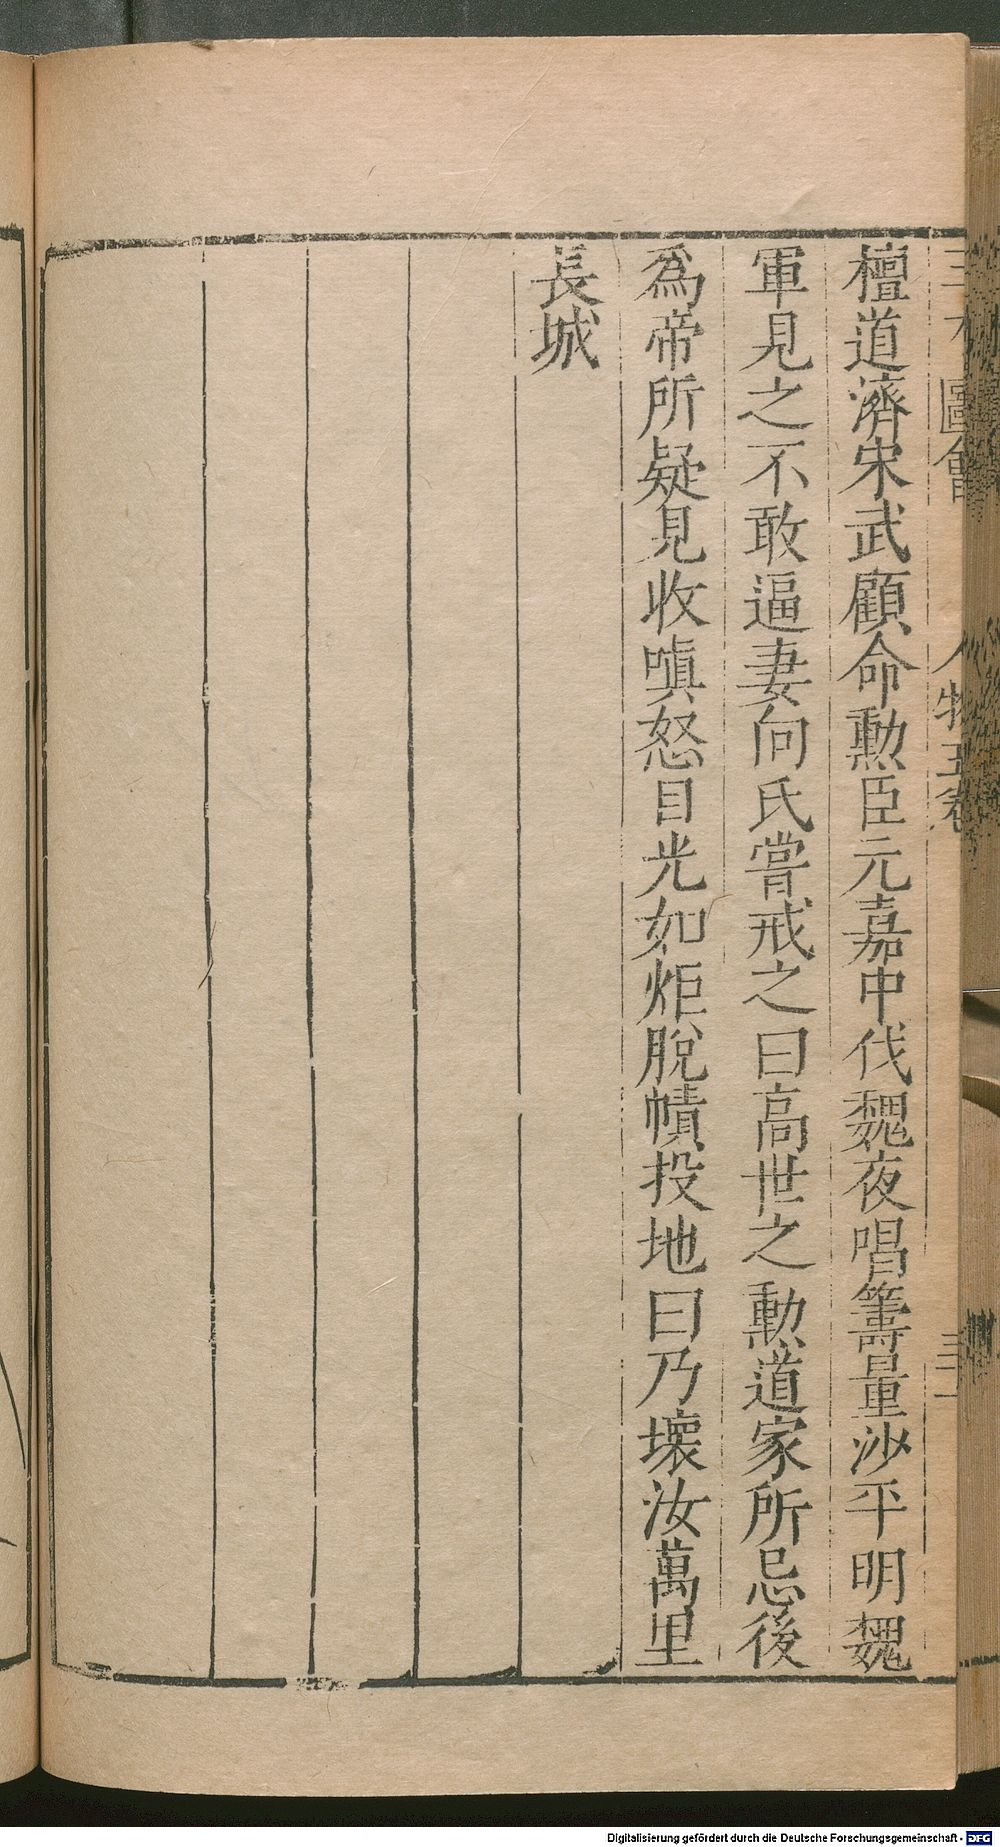 三才圖會 人物五卷 三十一
檀道濟宋武顧命勳臣元嘉中伐魏夜唱籌量沙平明魏
軍見之不敢逼妻向氏嘗戒之曰高世之勳道家所忌後
為帝所疑見收嗔怒目光如炬脫幘投地曰乃壞汝萬里
長城
Digitalisierung gefördert durch die Deutsche Forschungsgemeinschaft - DFG